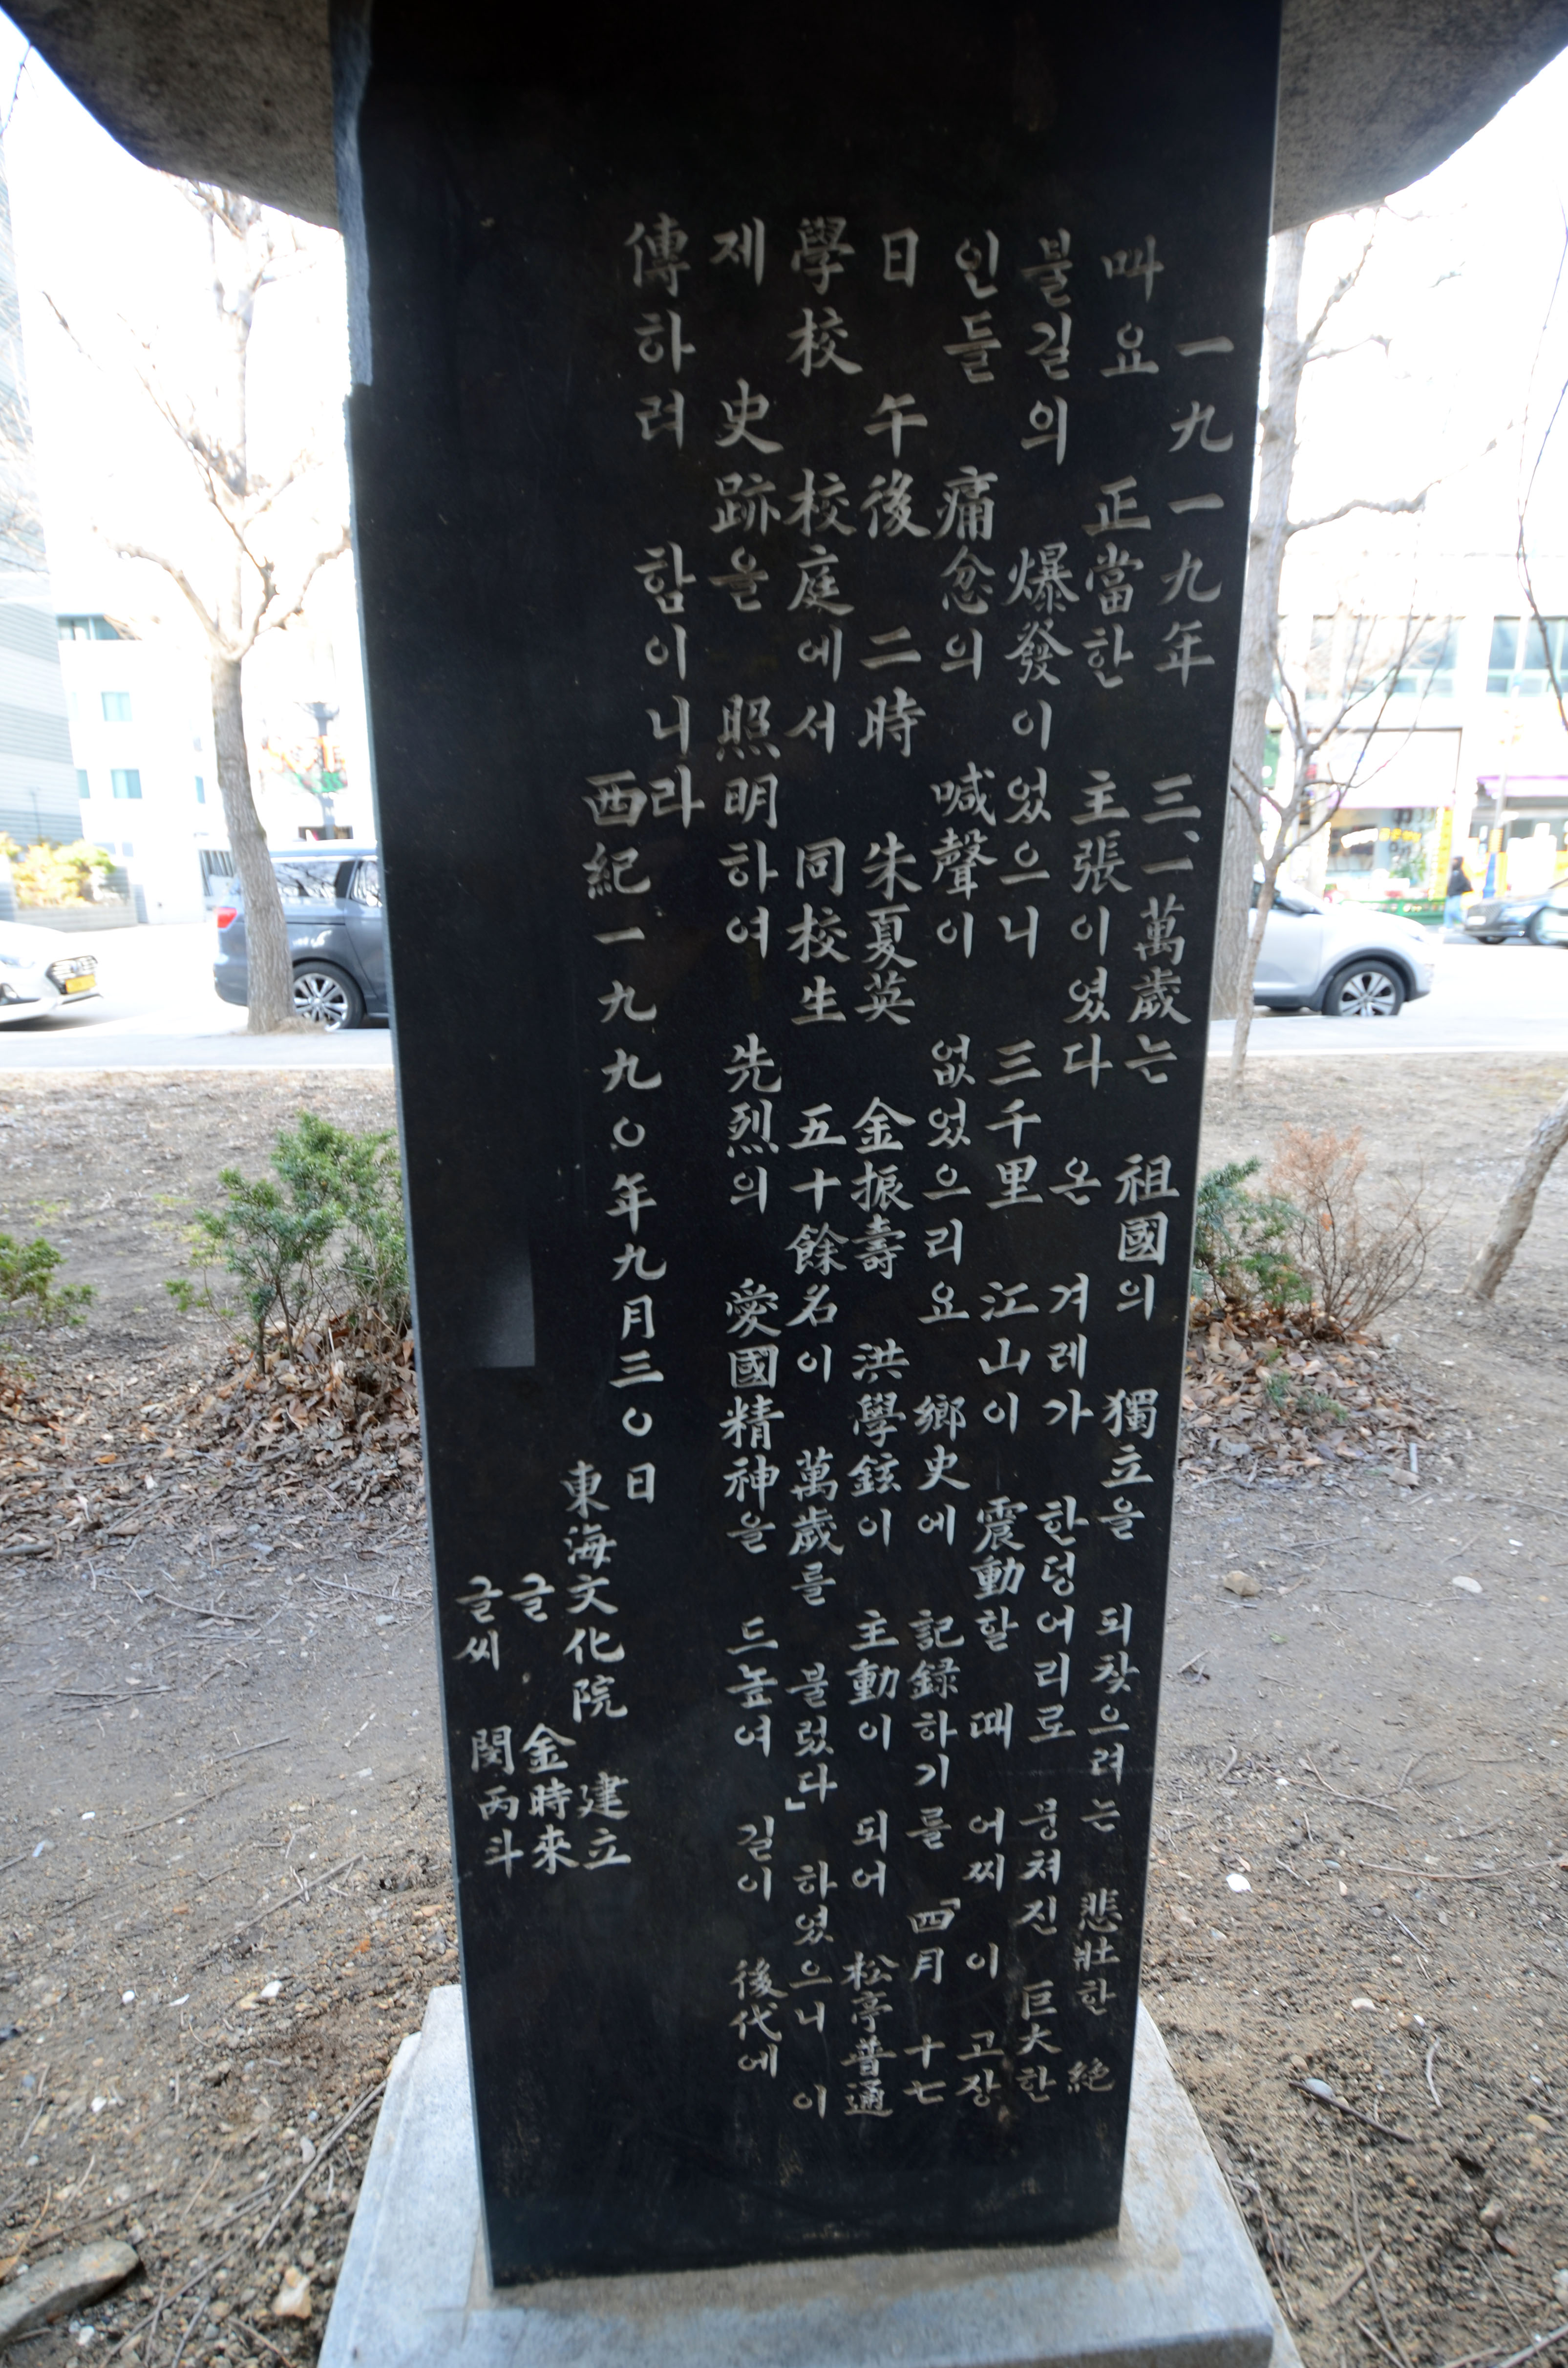 一九一九年 三、一萬歲는 祖國의 獨立을 되찾으려는 悲壯한 絶
叫요 正當한 主張이였다 온 겨레가 한덩어리로 뭉쳐진 巨大한
불길의 爆發이었으니 三千里 江山이 震動할 때 어찌 이 고장
인들 痛忿의 喊聲이 없었으리요 鄕史에 記録하기를 「四月 十七
日 午後 二時 朱夏英 金振壽 洪學鉉이 主動이 되어 松亭普通
學校 校庭에서 同校生 五十餘名이 萬歲를 불렀다」 하였으니 이
제 史跡을 照明하여 先烈의 愛國精神을 드높여 길이 後代에
傳하려 함이니라
西紀一九九〇年九月三〇日
東海文化院 建立
글 金時來
글씨 閔丙斗